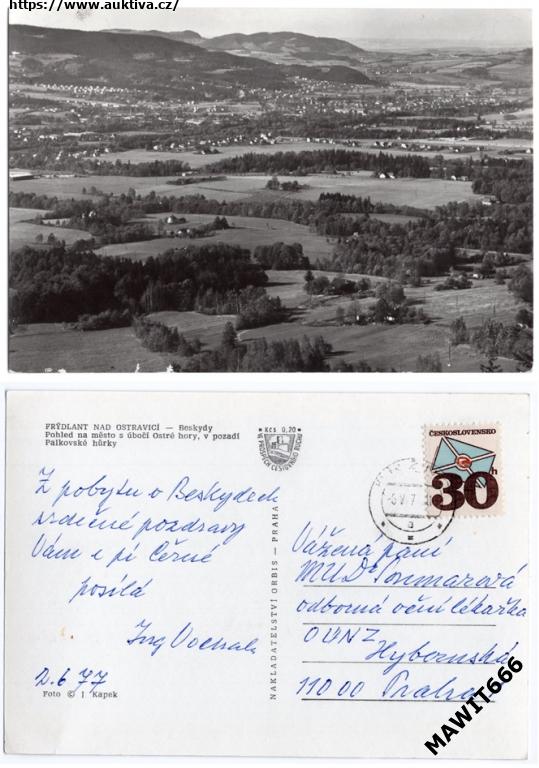 https://www.auktiva.cz/
FRÝDLANT NAD OSTRAVICÍ — Beskydy
Pohled na město s úbočí Ostré hory, v pozadí
Palkovské hůrky
Kčs 0,20
VE PROSPĚCH CESTOVNÍHO RUCHU
ČESKOSLOVENSKO
30h
Z pobytu v Beskydech
srdečné pozdravy
Vám e pí Černé
posílá
Ing
2.6 77
Foto © J Kapek
NAKLADATELSTVÍ ORBIS — PRAHA
Vážená paní
MUDr
odborná oční lékařka
OÚNZ
Hybernská
110 00 Praha
MAWIT666